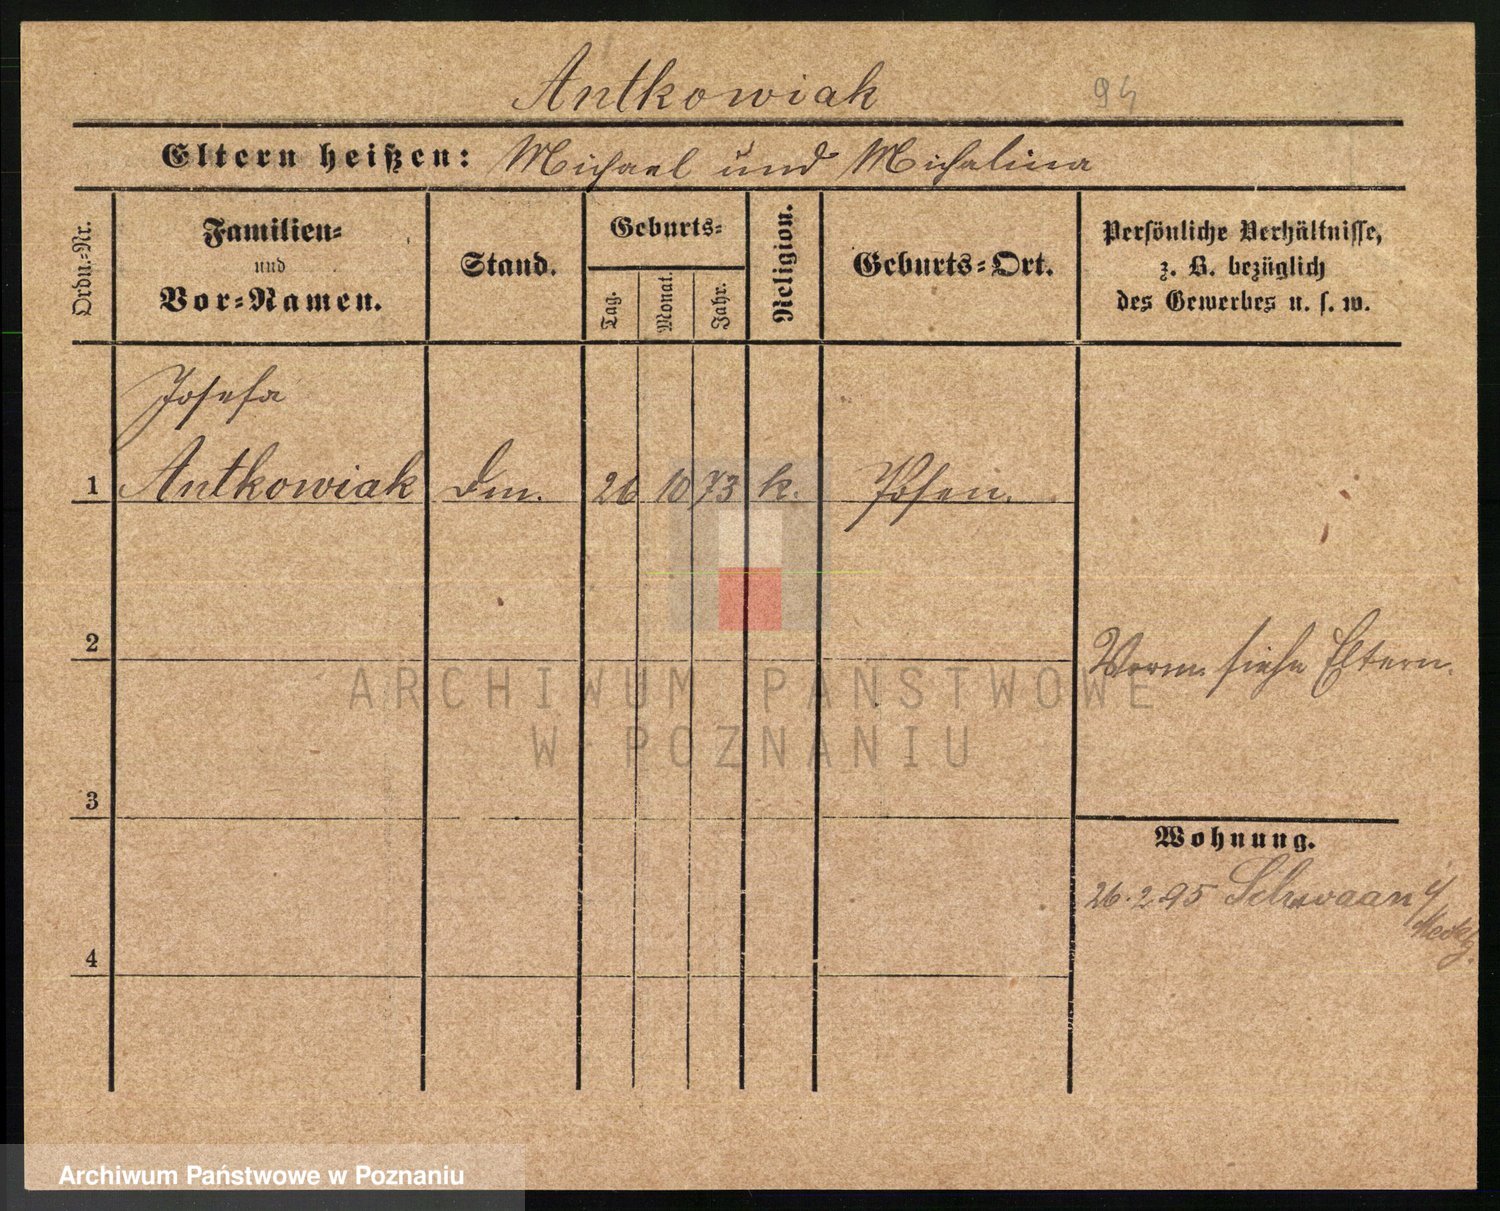 Antkowiak 94
Eltern heißen: Michael und Michalina
Ordn.-Nr.
Familien-
und
Vor-Namen.
Stand.
Geburts-
Tag.
Monat.
Jahr.
Religion.
Geburts-Ort.
Persönliche Verhältnisse,
z. B. bezüglich
des Gewerbes u. s. w.
Josefa
1 Antkowiak Dm. 26 10 73 k. Posen.
2
Vorm. siehe Eltern.
ARCHIWUM PAŃSTWOWE
W POZNANIU
3
Wohnung.
26.2.95 Schwaan
Mecklg.
4
Archiwum Państwowe w Poznaniu